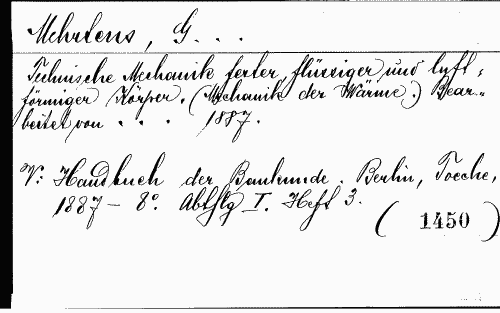 Mehrtens, G. . .
Technische Mechanik fester, flüssiger und luft-
förmiger Körper. (Mechanik der Wärme.) Bear-
beitet von . . . 1887.
V: Handbuch der Baukunde. Berlin, Toeche,
1887 – 8°. Abthlg I. Heft 3.
( 1450 )